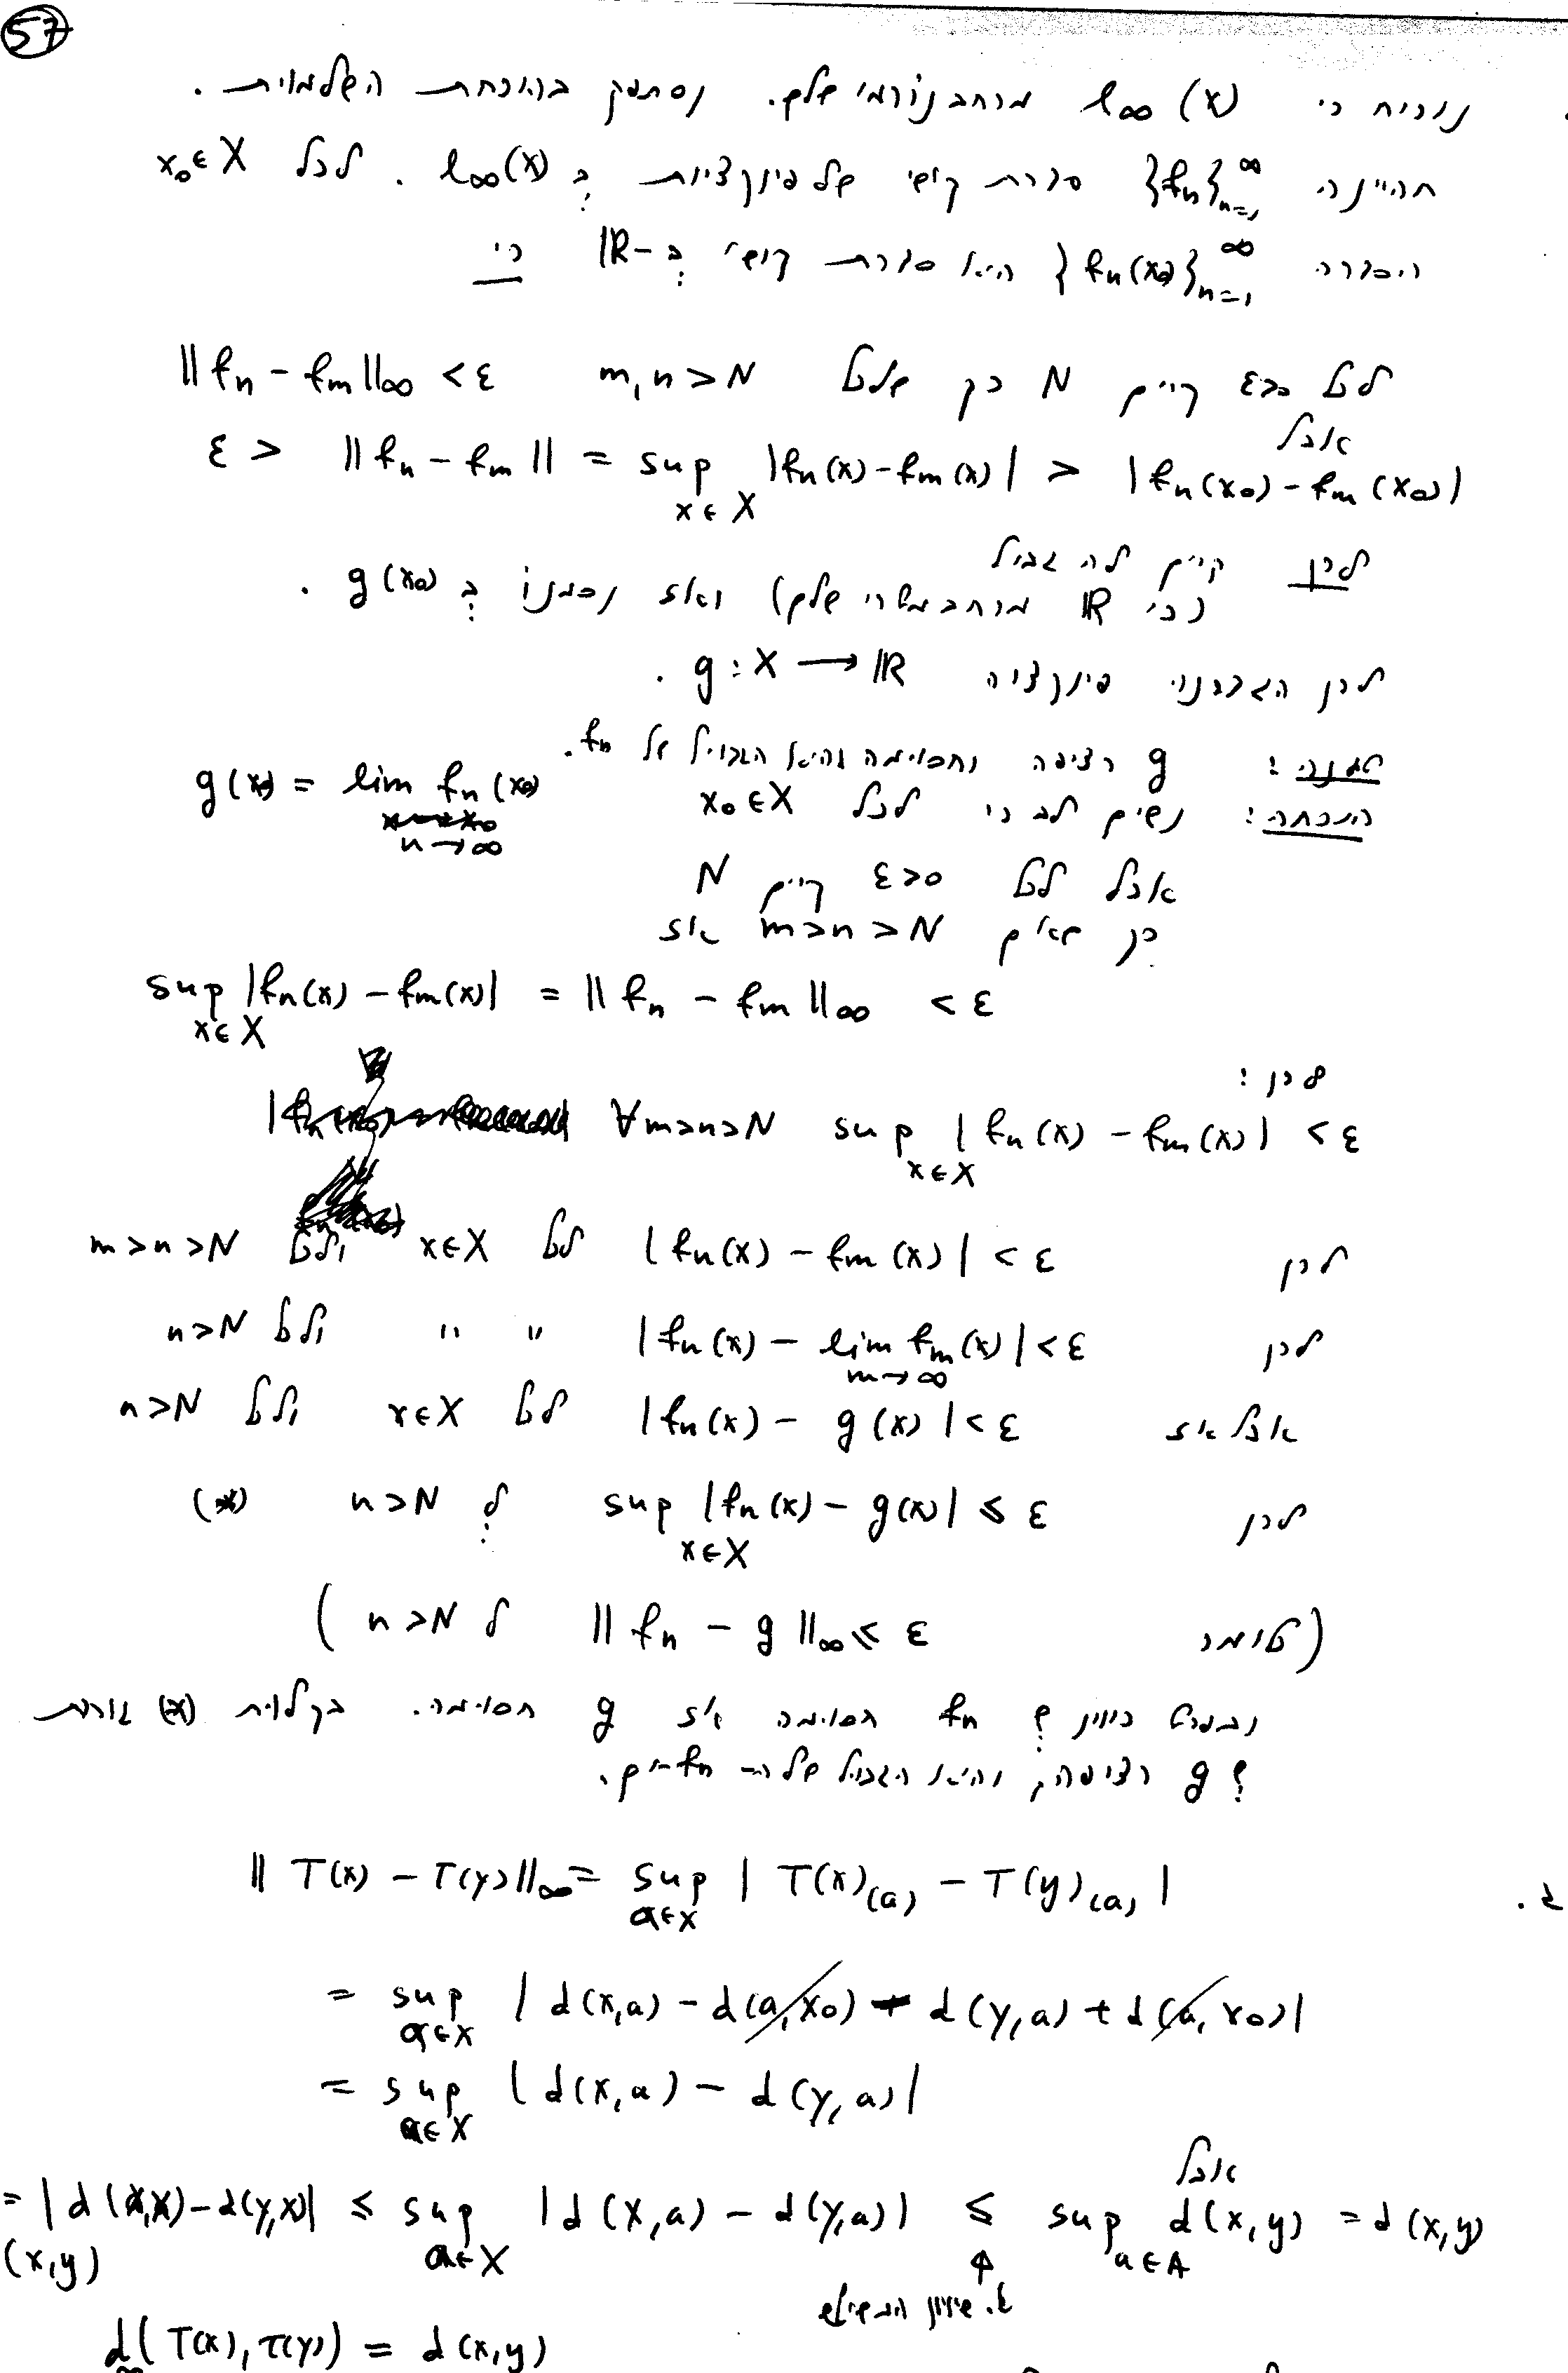 57
נוכיח כי l∞(X) מרחב נורמי שלם. נסתפק בהוכחת השלמות.
תהיינה {fn}∞n=1 סדרת קושי של פונקציות ב l∞(X). לכל x₀∈X
הסדרה {fn(x₀)}∞n=1 היא סדרת קושי ב-ℝ כי
לכל ε>0 קיים N כך שלכל m,n>N ‖fn - fm‖∞ < ε
אבל
ε > ‖fn - fm‖ = sup x∈X |fn(x)-fm(x)| > |fn(x₀)-fm(x₀)|
לכן קיים לה גבול
(כי ℝ מרחב מטרי שלם) ואז נסמנו ב g(x₀).
לכן הגדרנו פונקציה g: X → ℝ.
טענה: g רציפה וחסומה והיא הגבול של fn.
הוכחה: נשים לב כי לכל x₀∈X g(x₀) = lim n→∞ fn(x₀)
אבל לכל ε>0 קיים N
כך שאם m>n>N אז
sup x∈X |fn(x) - fm(x)| = ‖fn - fm‖∞ < ε
לכן:
∀m>n>N sup x∈X |fn(x) - fm(x)| < ε
לכן |fn(x) - fm(x)| < ε לכל x∈X ולכל m>n>N
לכן |fn(x) - lim m→∞ fm(x)| < ε " " ולכל n>N
אבל אז |fn(x) - g(x)| < ε לכל x∈X ולכל n>N
לכן sup x∈X |fn(x) - g(x)| ≤ ε ל n>N (*)
(כלומר ‖fn - g‖∞ ≤ ε ל n>N)
ובפרט כיוון ש fn חסומה אז g חסומה. בקלות (*) גורר
ש g רציפה, והיא הגבול של ה- fn-ים.
ג. ‖T(x) - T(y)‖∞ = sup a∈X |T(x)(a) - T(y)(a)|
= sup a∈X |d(x,a) - d(a,x₀) - d(y,a) + d(a,x₀)|
= sup a∈X |d(x,a) - d(y,a)|
אבל
= |d(x,x)-d(y,x)| ≤ sup a∈X |d(x,a) - d(y,a)| ≤ sup a∈A d(x,y) = d(x,y)
(x,y)
אי שוויון המשולש
d∞(T(x),T(y)) = d(x,y)